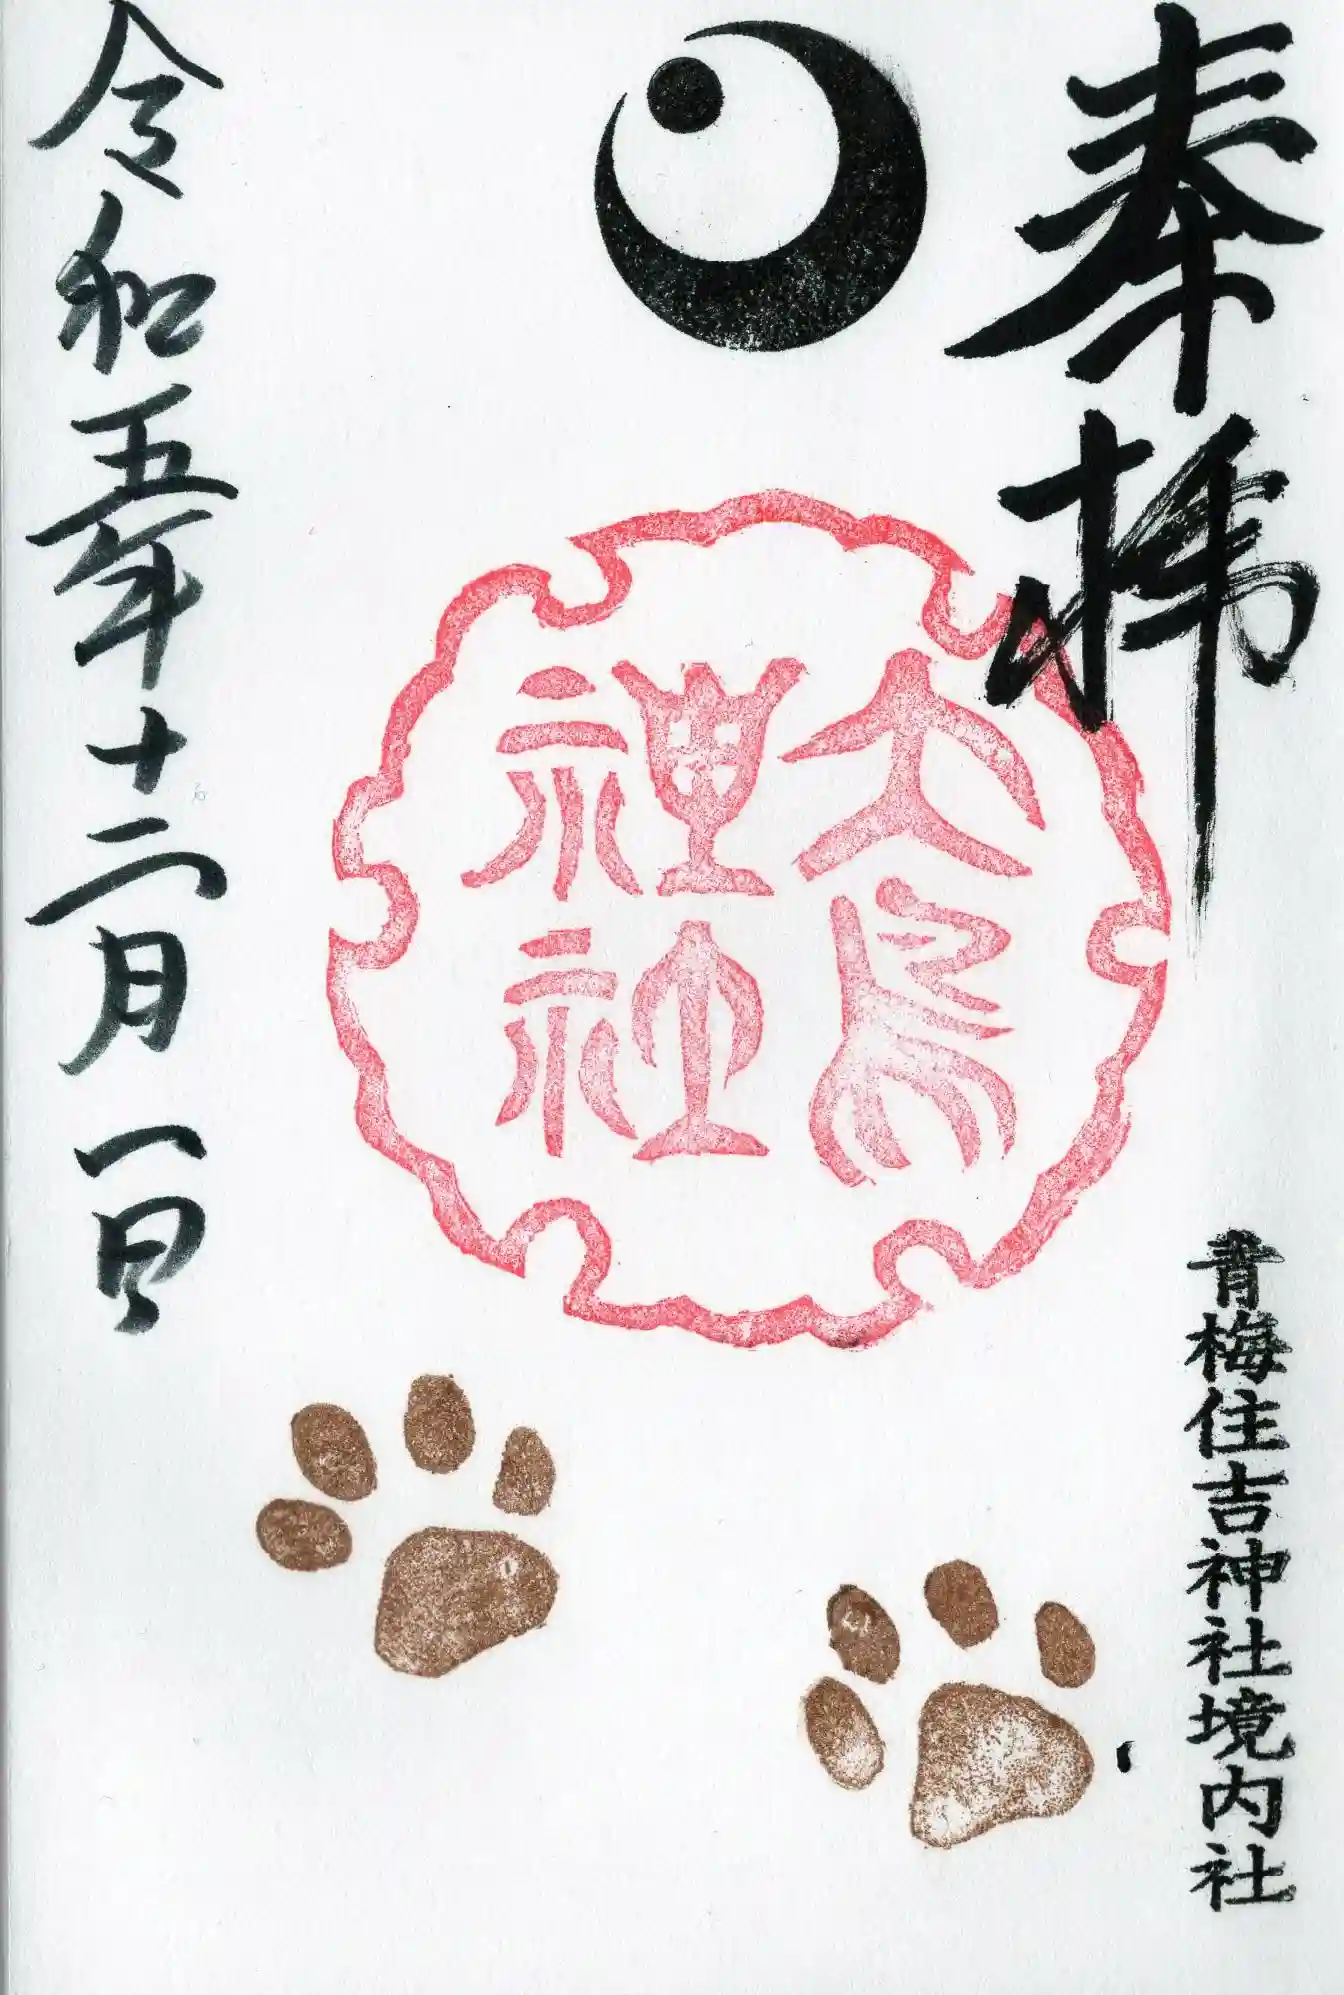 奉拝
青梅住吉神社境内社
大鳥
神社
令和五年十二月一日